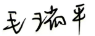 毛瑞平